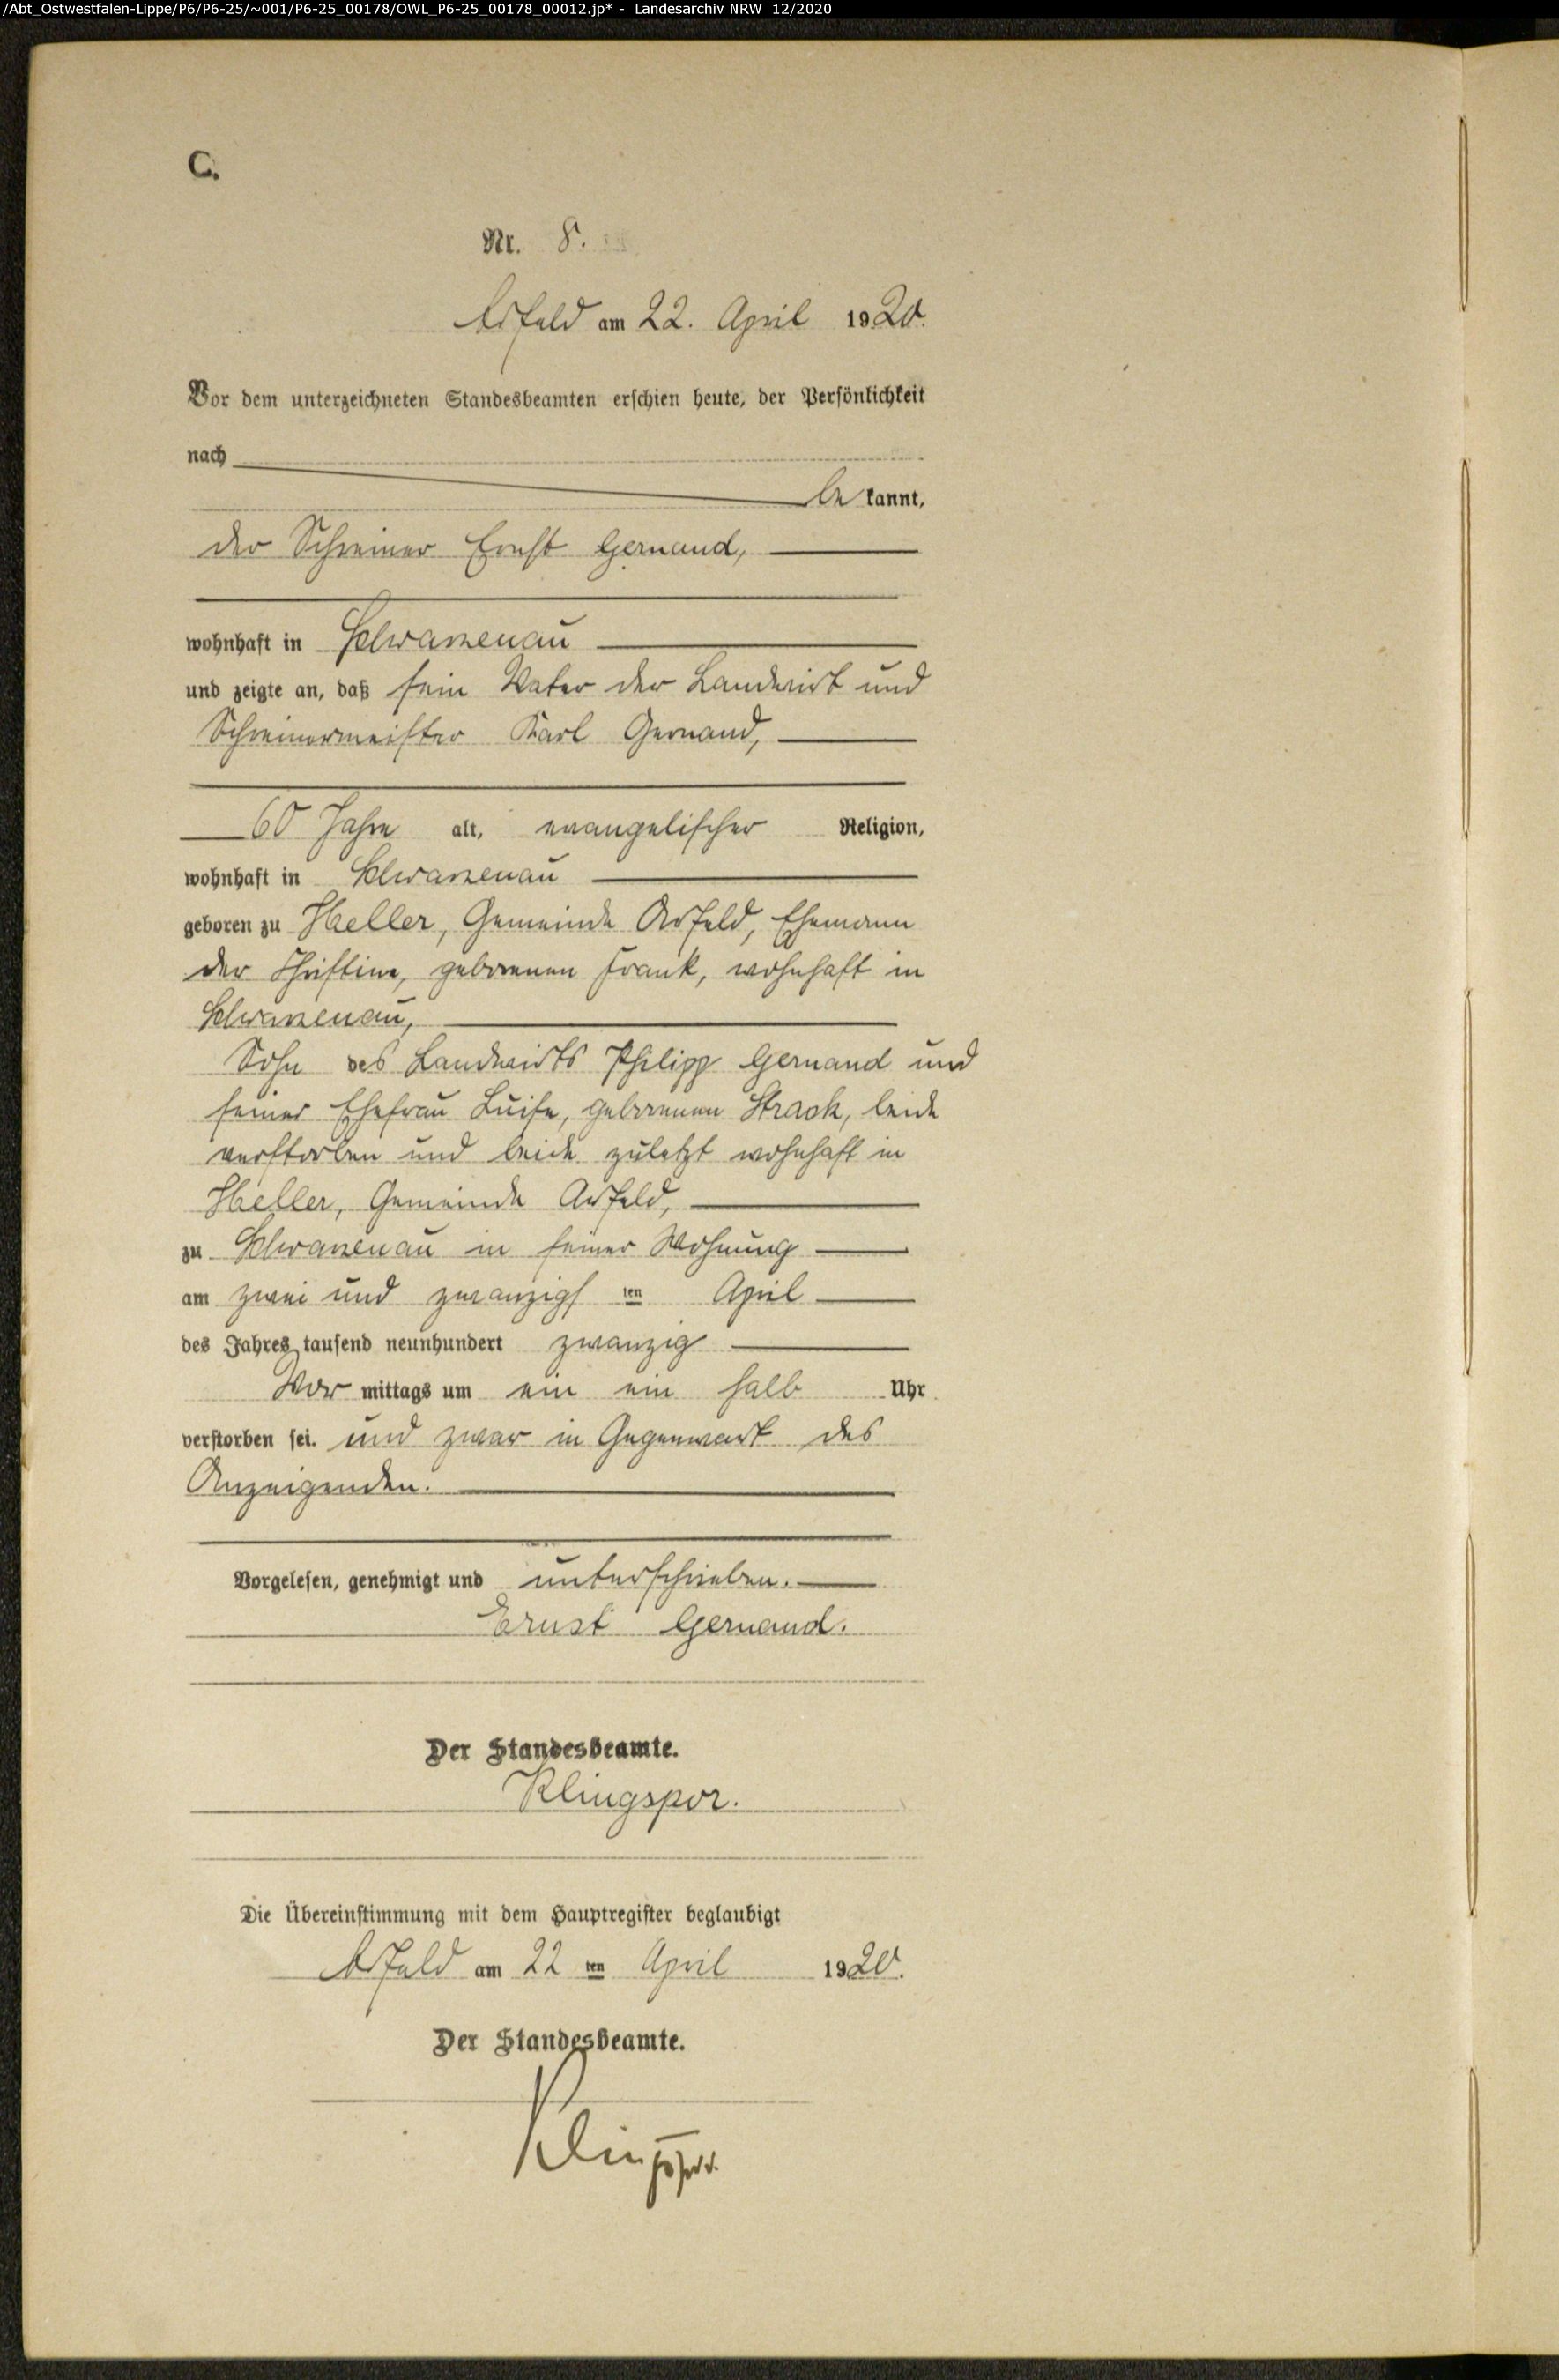 /Abt_Ostwestfalen-Lippe/P6/P6-25/~001/P6-25_00178/OWL_P6-25_00178_00012.jp* - Landesarchiv NRW 12/2020
C.
Nr. 8.
Arfeld am 22. April 1920.
Vor dem unterzeichneten Standesbeamten erschien heute, der Persönlichkeit
nach
be kannt,
der Schreiner Ernst Gernand,
wohnhaft in Schwarzenau
und zeigte an, daß sein Vater der Landwirt und
Schreinermeister Karl Gernand,
60 Jahre alt, evangelischer Religion,
wohnhaft in Schwarzenau
geboren zu Heller, Gemeinde Arfeld, Ehemann
der Christine, geborenen Frank, wohnhaft in
Schwarzenau,
Sohn des Landwirts Philipp Gernand und
seiner Ehefrau Luise, geborenen Strack, beide
verstorben und beide zuletzt wohnhaft in
Heller, Gemeinde Arfeld,
zu Schwarzenau in seiner Wohnung
am zwei und zwanzigs ten April
des Jahres tausend neunhundert zwanzig
Vor mittags um ein ein halb Uhr
verstorben sei. und zwar in Gegenwart des
Anzeigenden.
Vorgelesen, genehmigt und unterschrieben.
Ernst Gernand.
Der Standesbeamte.
Klingspor.
Die Übereinstimmung mit dem Hauptregister beglaubigt
Arfeld am 22 ten April 1920.
Der Standesbeamte.
Klingspor.